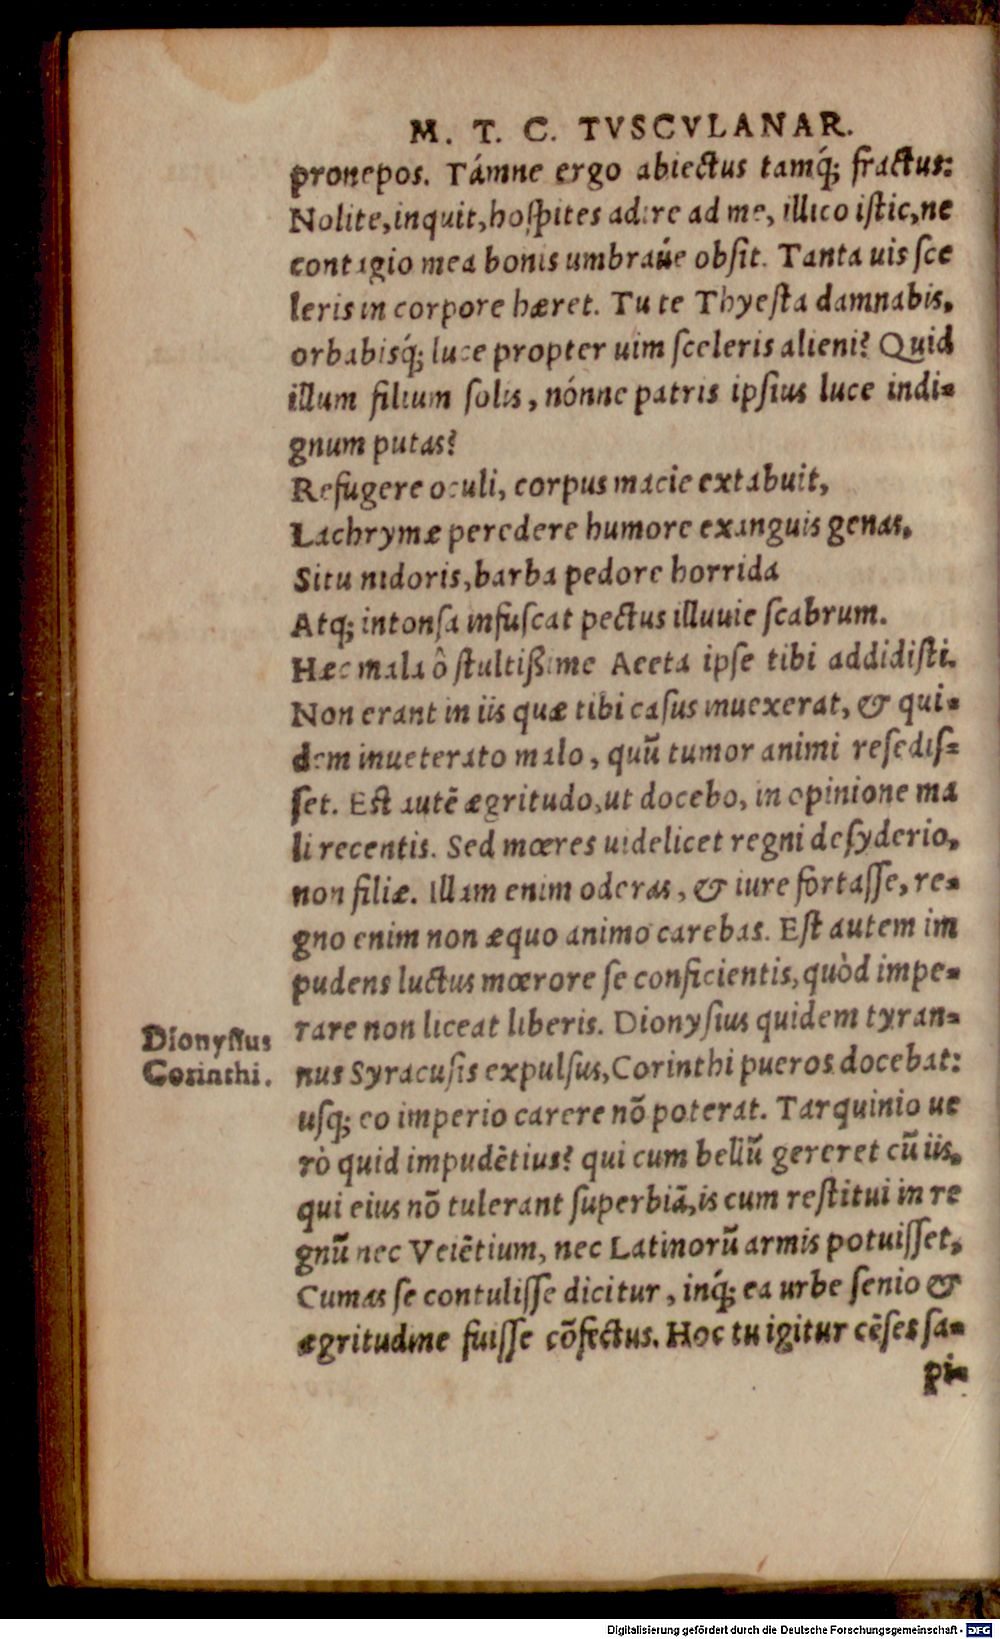 M. T. C. TVSCVLANAR.
pronepos. Támne ergo abiectus tamq́; fractus:
Nolite, inquit, hoſpites adire ad me, illico iſtic, ne
contagio mea bonis umbraúe obſit. Tanta uis ſce
leris in corpore hæret. Tu te Thyeſta damnabis,
orbabisq́; luce propter uim ſceleris alieni? Quid
illum filium ſolis, nónne patris ipſius luce indi-
gnum putas?
Refugere oculi, corpus macie extabuit,
Lachrymæ peredere humore exanguis genas,
Situ nidoris, barba pedore horrida
Atq; intonſa infuſcat pectus illuuie ſcabrum.
Hæc mala ô ſtultißime Aeeta ipſe tibi addidiſti.
Non erant in iis quæ tibi caſus inuexerat, & qui-
dem inueterato malo, quũ tumor animi reſediſ-
ſet. Eſt autẽ ægritudo, ut docebo, in opinione ma
li recentis. Sed mœres uidelicet regni deſyderio,
non filiæ. Illam enim oderas, & iure fortaſſe, re-
gno enim non æquo animo carebas. Eſt autem im
pudens luctus mœrore ſe conficientis, quòd impe-
rare non liceat liberis. Dionyſius quidem tyran-
Dionyſius
Corinthi.
nus Syracuſis expulſus, Corinthi pueros docebat:
uſq; eo imperio carere nõ poterat. Tarquinio ue
rò quid impudẽtius? qui cum bellũ gereret cũ iis,
qui eius nõ tulerant ſuperbiã, is cum reſtitui in re
gnũ nec Veiẽtium, nec Latinorũ armis potuiſſet,
Cumas ſe contuliſſe dicitur, inq́; ea urbe ſenio &
ægritudine fuiſſe cõfectus. Hoc tu igitur cẽſes ſa-
pi-
Digitalisierung gefördert durch die Deutsche Forschungsgemeinschaft - DFG